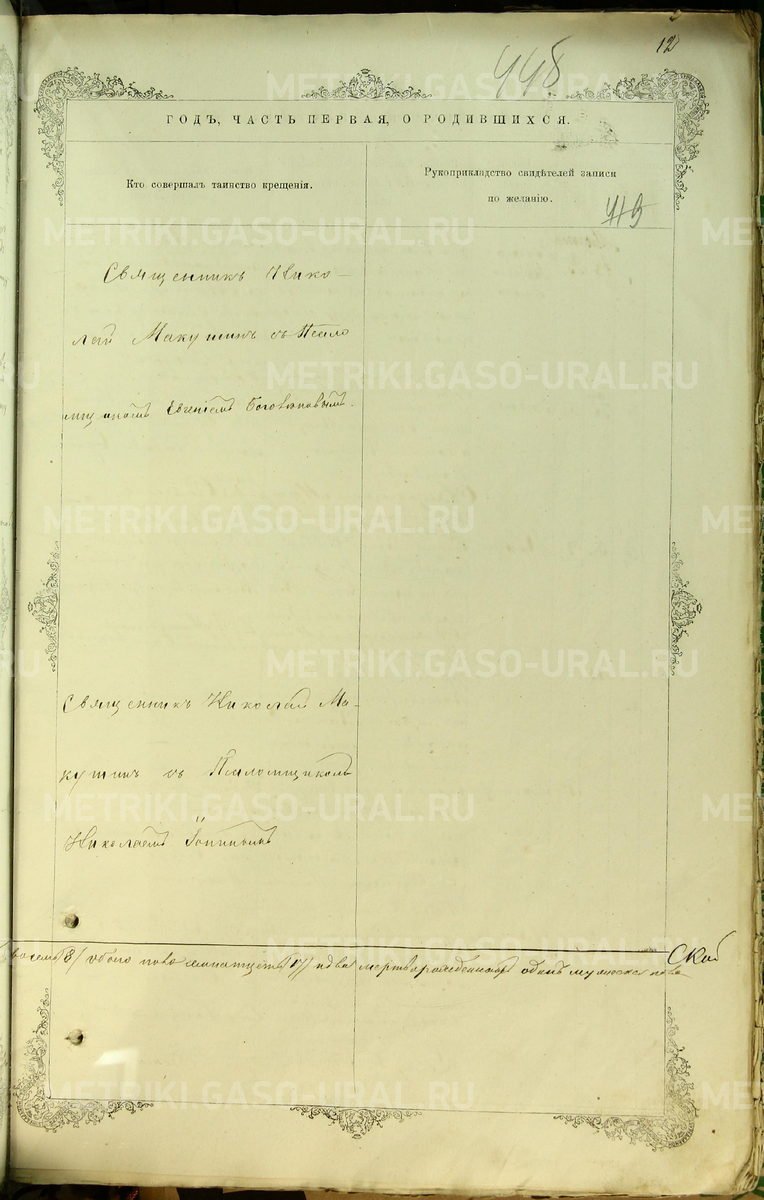 12
448
ГОДЪ, ЧАСТЬ ПЕРВАЯ, О РОДИВШИХСЯ.
Кто совершалъ таинство крещенія.
Рукоприкладство свидѣтелей записи
по желанію.
Священникъ Нико-
лай Макушинъ съ Псало
мщикомъ Евгеніемъ
Священникъ Николай Ма-
кушинъ съ Псаломщикомъ
Николаемъ
восемь /8/ обоего пола /17/ и два мертворожденныхъ одинъ мужеска пола
METRIKI.GASO-URAL.RU